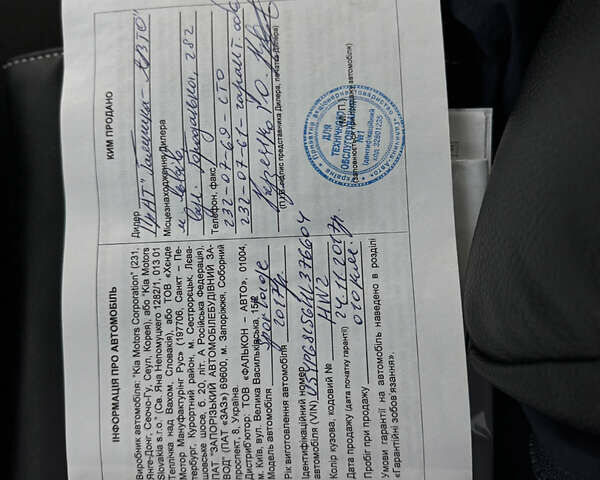 ІНФОРМАЦІЯ ПРО АВТОМОБІЛЬ
Виробник автомобіля: "Kia Motors Corporation" (231,
Янге-Донг, Сеочо-Гу, Сеул, Корея), або "Kia Motors
Slovakia s.r.o." (Св. Яна Непомуцкего 1282/1, 013 01
Тепличка над Вахом, Словакія), або ТОВ «Хенде
Мотор Мануфактурінг Рус» (197706, Санкт – Пе-
тербург, Курортний район, м. Сестрорецьк, Лева-
шовське шосе, б. 20, літ. А Російська Федерація),
ПАТ "ЗАПОРІЗЬКИЙ АВТОМОБІЛЕБУДІВНИЙ ЗА-
ВОД" (ПАТ «ЗАЗ») 69600, м. Запоріжжя, Соборний
проспект, 8, Україна.
Дистриб'ютор: ТОВ «ФАЛЬКОН – АВТО», 01004,
м. Київ, вул. Велика Васильківська, 15/2
Модель автомобіля Sportage
Рік виготовлення автомобіля 2017р.
Ідентифікаційний номер
автомобіля (VIN)
Колір кузова, кодовий № HW2
Дата продажу (дата початку гарантії) 24.11.2017р.
Пробіг при продажу 010 км.
Умови гарантії на автомобіль наведено в розділі
«Гарантійні зобов'язання».
КИМ ПРОДАНО
Дилер
Місцезнаходження Дилера
вул. 282
Телефон, факс
232-07-69 - СТО
232-07-61 -
(П.І.Б., підпис представника Дилера, печатка Дилера)
ДЛЯ
ТЕХНІЧНОГО
ОБСЛУГОВУВАННЯ
№1
(М.П.)